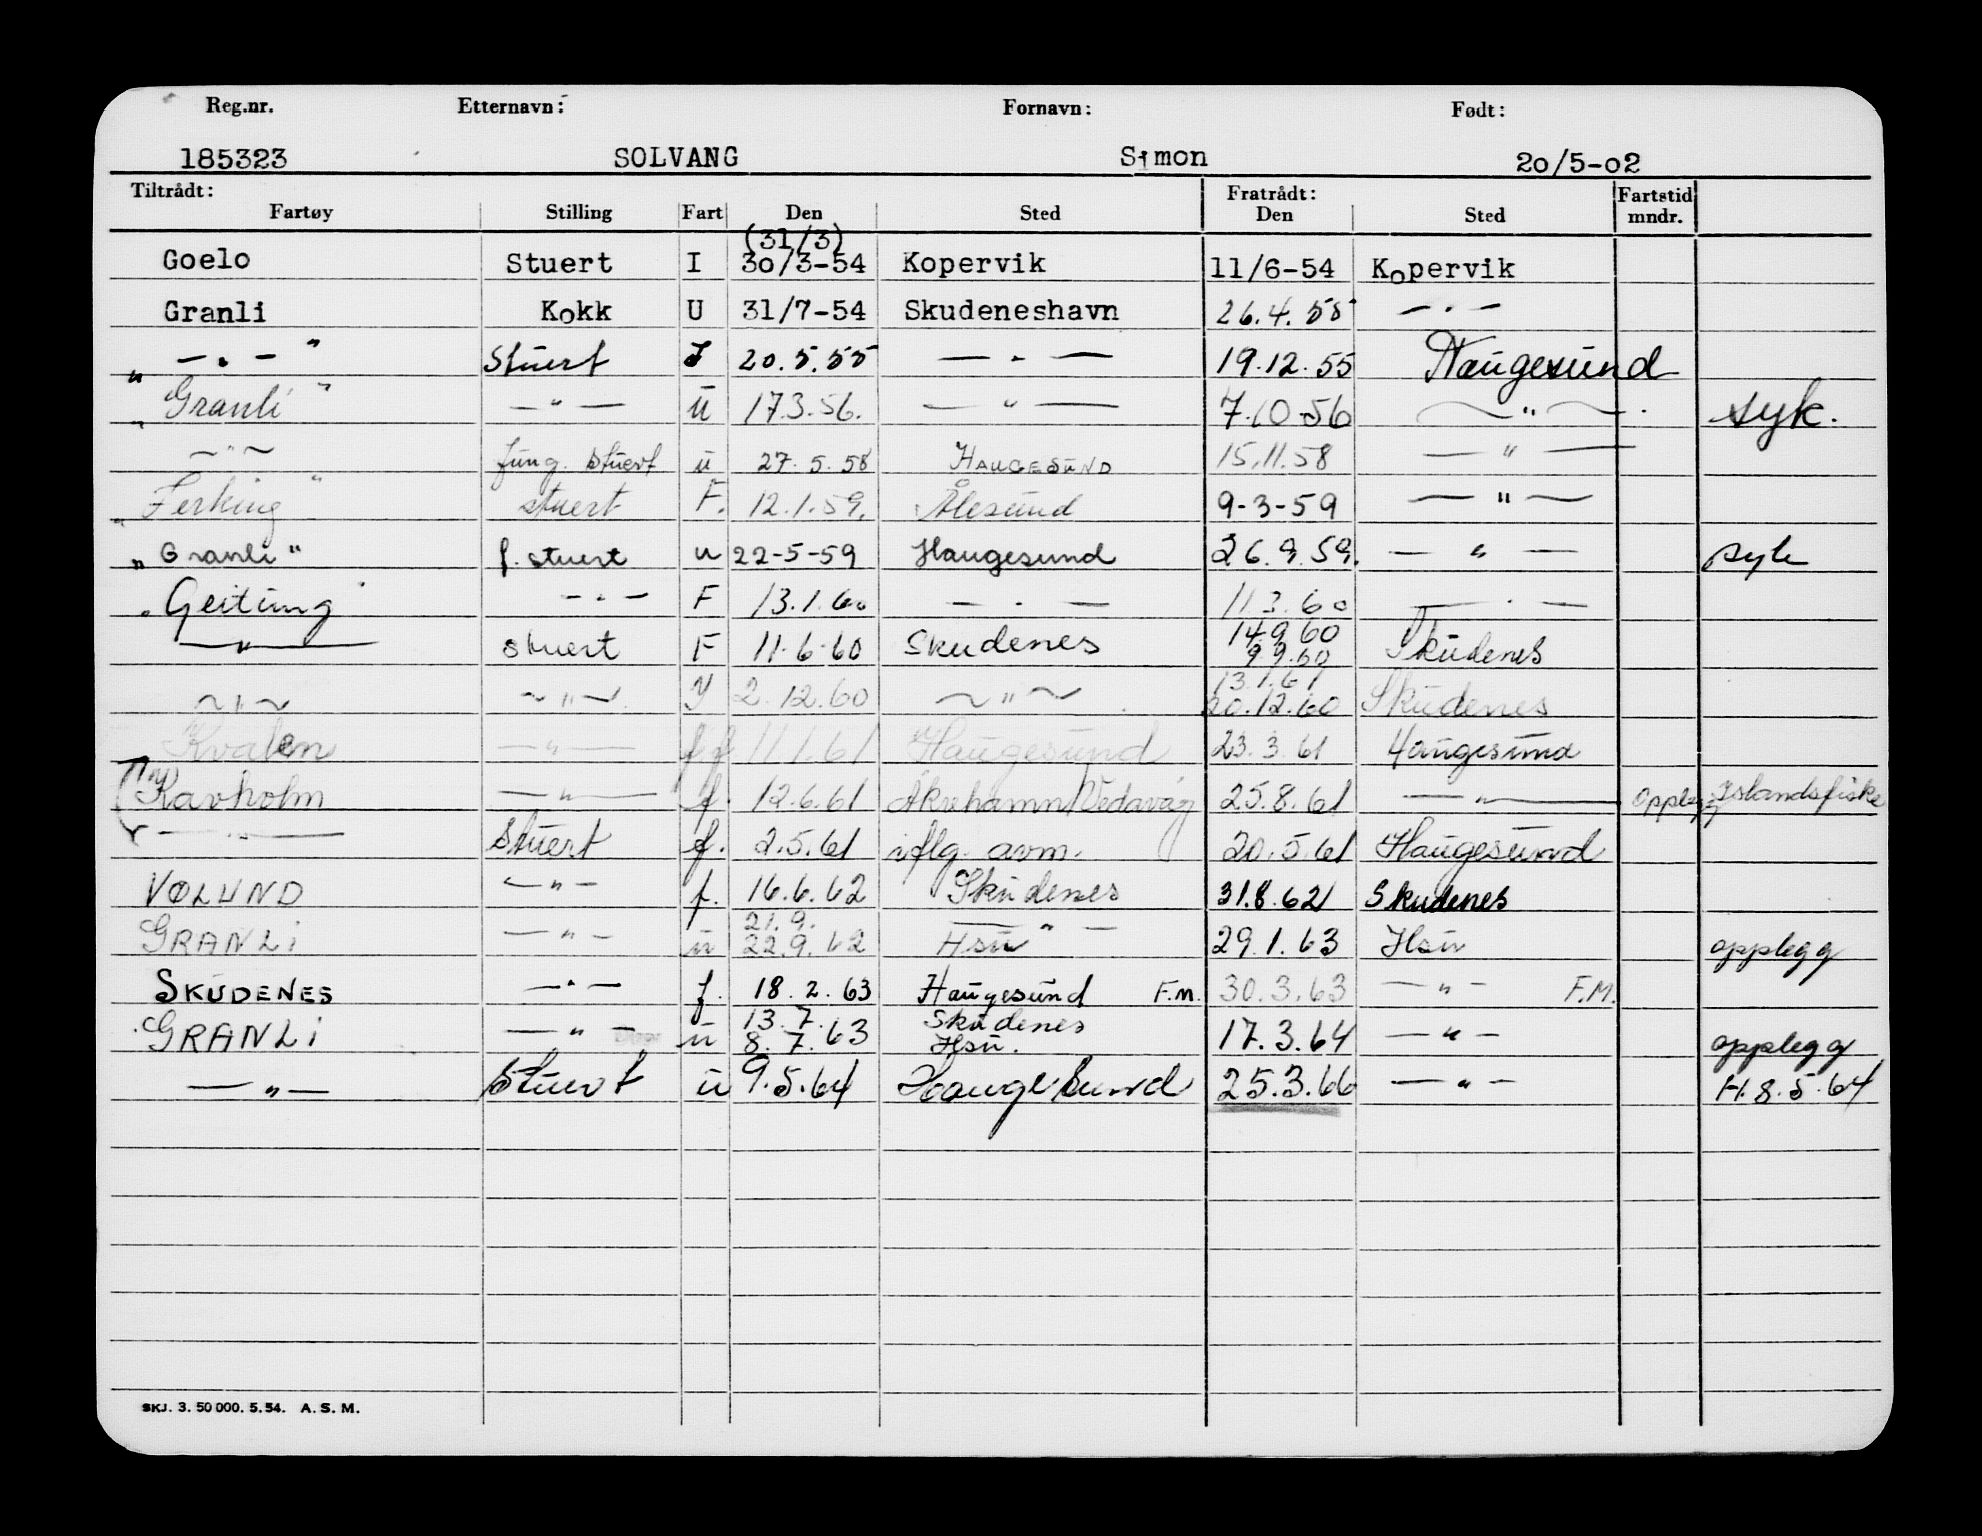 Reg.nr. Etternavn: Fornavn: Født:
185323 SOLVANG Simon 20/5-02
Tiltrådt: Fratrådt: Fartstid
Fartøy Stilling Fart Den Sted Den Sted mndr.
(31/3)
Goelo Stuert I 30/3-54 Kopervik 11/6-54 Kopervik
Granli Kokk U 31/7-54 Skudeneshavn 26.4.55 — " —
„ — " — " Stuert I 20.5.55 — " — 19.12.55 Haugesund
„ Granli " — " — u 17.3.56. — " — 7.10-56 — " — syk.
— " — fung. stuert u 27.5.58 HAUGESUND 15.11.58 — " —
„ Ferking " stuert F. 12.1.59. Ålesund 9-3-59 — " —
„ Granli " f. stuert u 22-5-59 Haugesund 26.9.59. — " — syk
„ Geitung ' — " — F 13.1.60 — " — 11.3.60 — " —
— " — stuert F 11.6.60 Skudenes 14.9.60 Skudenes
9.9.60
13.1.61
— " — — " — 2.12.60 — " — 20.12.60 Skudenes
Kvalen — " — ff 11.1.61 Haugesund 23.3.61 Haugesund
Ravholm — " — f. 12.6.61 Åkrehamn/Vedavåg 25.8.61 — " — Opplegg Islandsfiske
— " — Stuert f. 2.5.61 iflg. avm. 20.5.61 Haugesund
VØLUND — " — f. 16.6.62 Skudenes 31.8.62 Skudenes
21.9. — " —
GRANLI — " — u 22.9.62 Hsu 29.1.63 Hsu opplegg
SKUDENES — " — f. 18.2.63 Haugesund F.M. 30.3.63 — " — F.M.
13.7. Skudenes
GRANLI — " — u 8.7.63 Hsu. 17.3.64 — " — opplegg
— " — Stuert u 9.5.64 Haugesund 25.3.66 — " — H.8.5.64
SKJ. 3. 50 000. 5. 54. A. S. M.